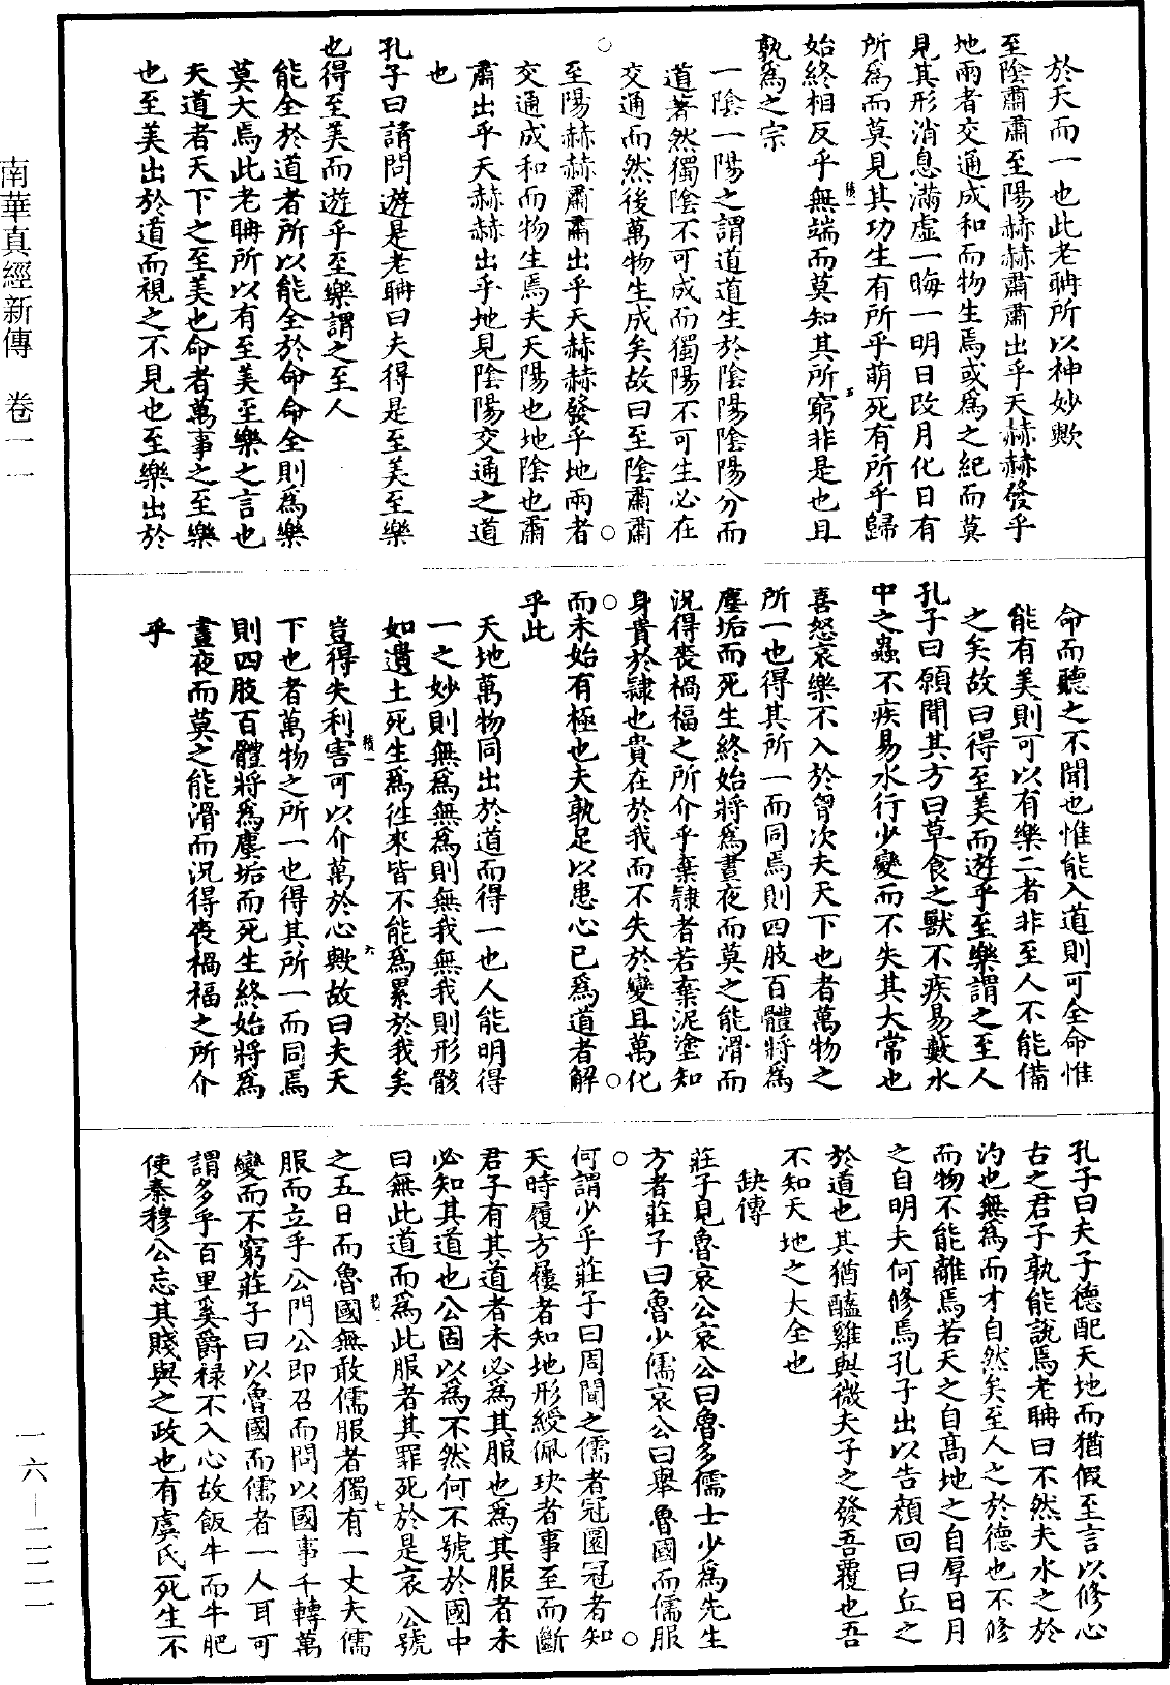 於天而一也此老聃所以神妙歟
至陰肅肅至陽赫赫肅肅出乎天赫赫發乎
地兩者交通成和而物生焉或為之紀而莫
見其形消息滿虛一晦一明日改月化日有
所為而莫見其功生有所乎萌死有所乎歸
始終相反乎無端而莫知其所窮非是也且
孰為之宗
一陰一陽之謂道道生於陰陽陰陽分而
道著然獨陰不可成而獨陽不可生必在
交通而然後萬物生成矣故曰至陰肅肅
至陽赫赫肅肅出乎天赫赫發乎地兩者
交通成和而物生焉夫天陽也地陰也肅
肅出乎天赫赫出乎地見陰陽交通之道
也
孔子曰請問遊是老聃曰夫得是至美至樂
也得至美而遊乎至樂謂之至人
能全於道者所以能全於命命全則為樂
莫大焉此老聃所以有至美至樂之言也
夫道者天下之至美也命者萬事之至樂
也至美出於道而視之不見也至樂出於
命而聽之不聞也惟能入道則可全命惟
能有美則可以有樂二者非至人不能備
之矣故曰得至美而遊乎至樂謂之至人
孔子曰願聞其方曰草食之獸不疾易藪水
中之蟲不疾易水行少變而不失其大常也
喜怒哀樂不入於胷次夫天下也者萬物之
所一也得其所一而同焉則四肢百體將為
塵垢而死生終始將為晝夜而莫之能滑而
況得喪禍福之所介乎棄隸者若棄泥塗知
身貴於隸也貴在於我而不失於變且萬化
而未始有極也夫孰足以患心已為道者解
乎此
天地萬物同出於道而得一也人能明得
一之妙則無為無為則無我無我則形骸
如遺土死生為徃來皆不能為累於我矣
豈得失利害可以介萬於心歟故曰夫天
下也者萬物之所一也得其所一而同焉
則四肢百體將為塵垢而死生終始將為
晝夜而莫之能滑而況得喪禍福之所介
乎
孔子曰夫子德配天地而猶假至言以修心
古之君子孰能說焉老聃曰不然夫水之於
汋也無為而才自然矣至人之於德也不修
而物不能離焉若天之自高地之自厚日月
之自明夫何修焉孔子出以告顏回曰丘之
於道也其猶醯雞與微夫子之發吾覆也吾
不知天地之大全也
缺傳
莊子見魯哀公哀公曰魯多儒士少為先生
方者莊子曰魯少儒哀公曰舉魯國而儒服
何謂少乎莊子曰周聞之儒者冠圜冠者知
天時履方屨者知地形緩佩玦者事至而斷
君子有其道者未必為其服也為其服者未
必知其道也公固以為不然何不號於國中
曰無此道而為此服者其罪死於是哀公號
之五日而魯國無敢儒服者獨有一丈夫儒
服而立乎公門公即召而問以國事千轉萬
變而不窮莊子曰以魯國而儒者一人耳可
謂多乎百里奚爵祿不入心故飯牛而牛肥
使秦穆公忘其賤與之政也有虞氏死生不
南華真經新傳 卷一一
一六—二二一